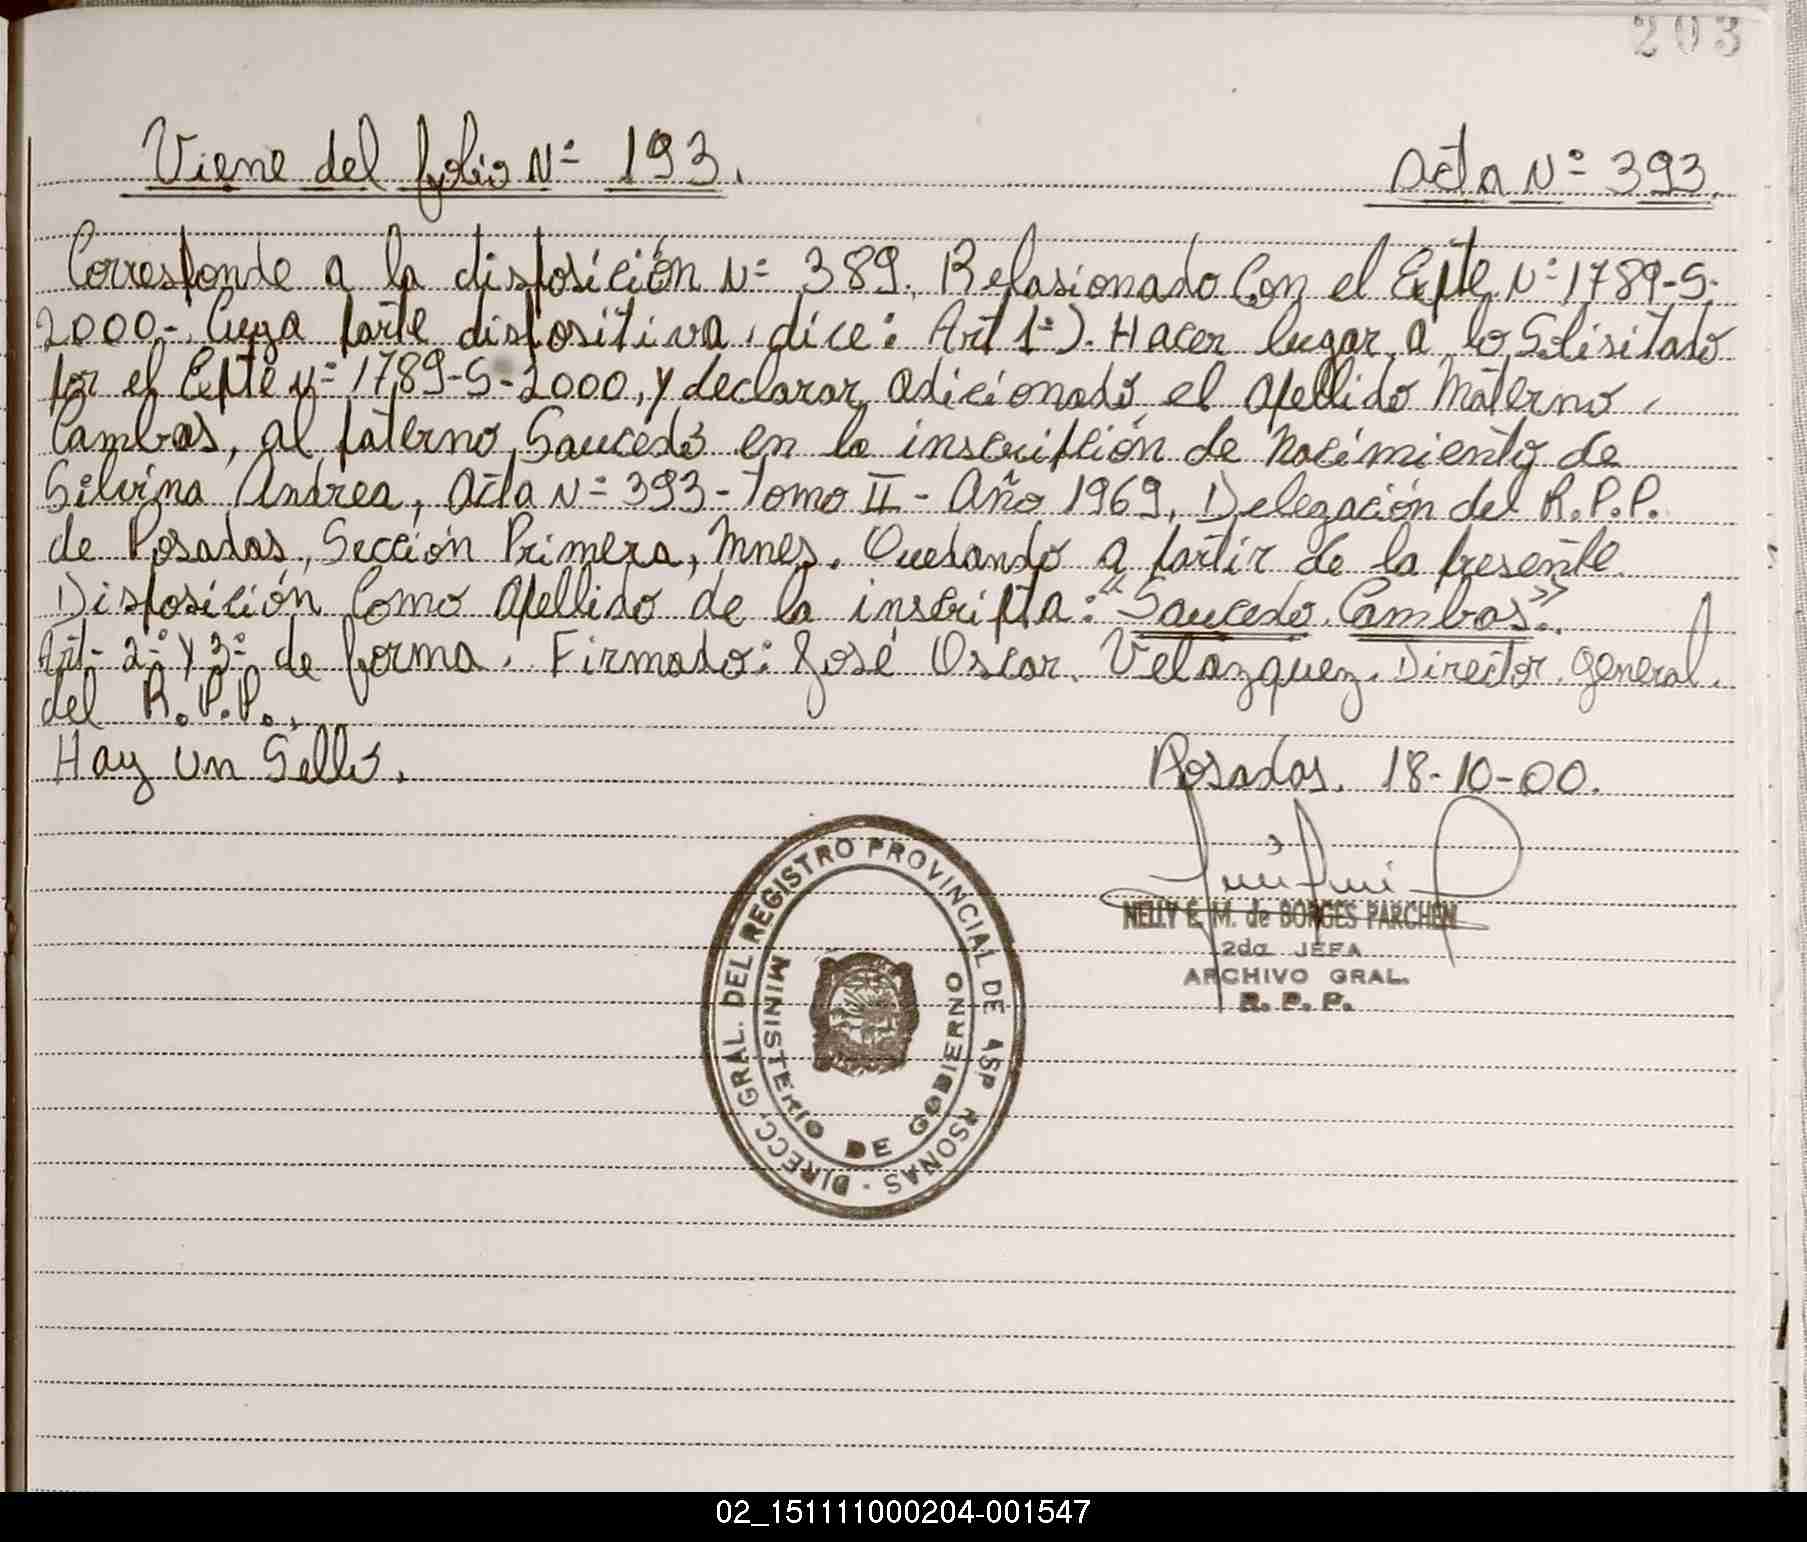 203
Viene del folio Nº 193. Acta Nº 393.
Corresponde a la disposición Nº 389. Relasionado Con el Expte Nº 1789-S-
2000-. Cuya parte dispositiva, dice: Art 1º). Hacer lugar a lo Solisitado
por el Expte Nº 1789-S-2000, y declarar adicionado el apellido Materno,
Cambas, al paterno Saucedo en la inscripción de nacimiento de
Silvina Andrea, Acta Nº 393-Tomo II - Año 1969, Delegación del R.P.P.
de Posadas, Sección Primera, Mnes. Quedando a partir de la presente
Disposición Como apellido de la inscripta: "Saucedo Cambas".
Art- 2º y 3º de forma. Firmado: José Oscar Velazquez. Director general.
del R.P.P.,
Hay un Sello. Posadas, 18-10-00.
NELLY E. M. de BORGES PARCHEM
2da JEFA
ARCHIVO GRAL.
R. P. P.
DIRECC. GRAL. DEL REGISTRO PROVINCIAL DE ASP RSONAS -
MINISTERIO DE GOBIERNO
02_151111000204-001547